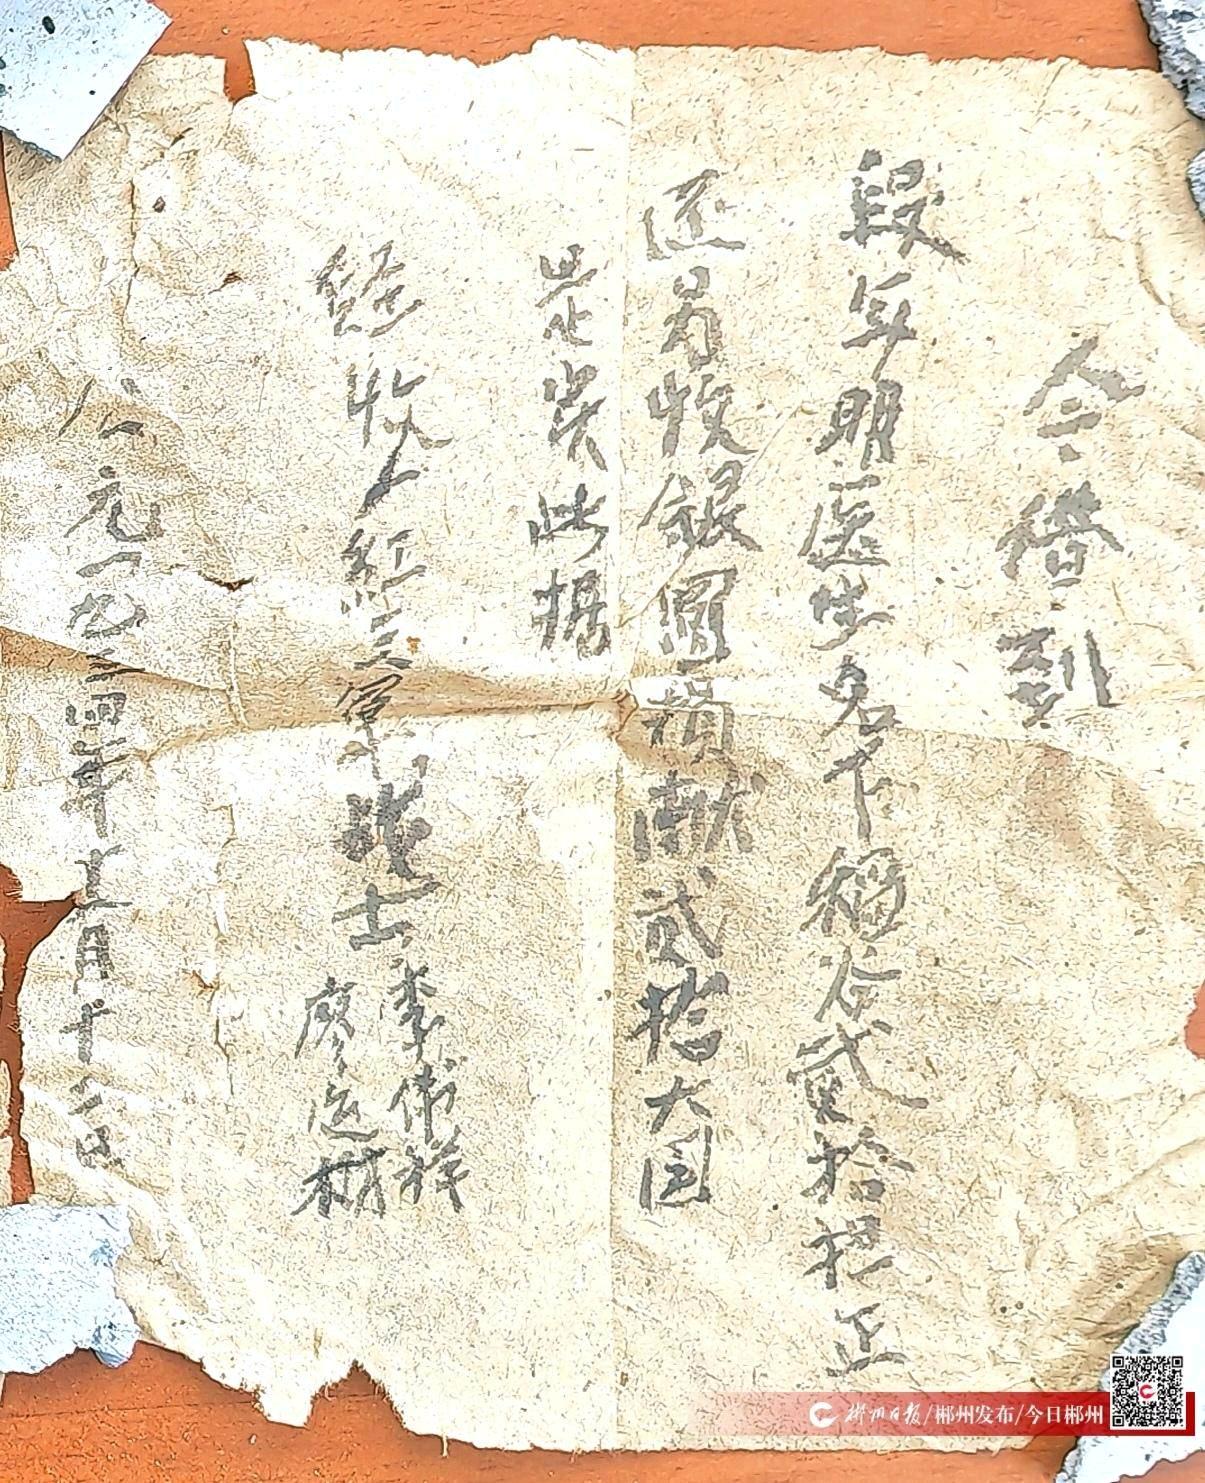 今借到
段年明医生名下稻谷貳拾担正
还另收銀圓捐献貳拾大园
是实此据
經收人紅三軍战士李书祥
廖运材
公元一九三四年十一月十二日
郴州日报/郴州发布/今日郴州